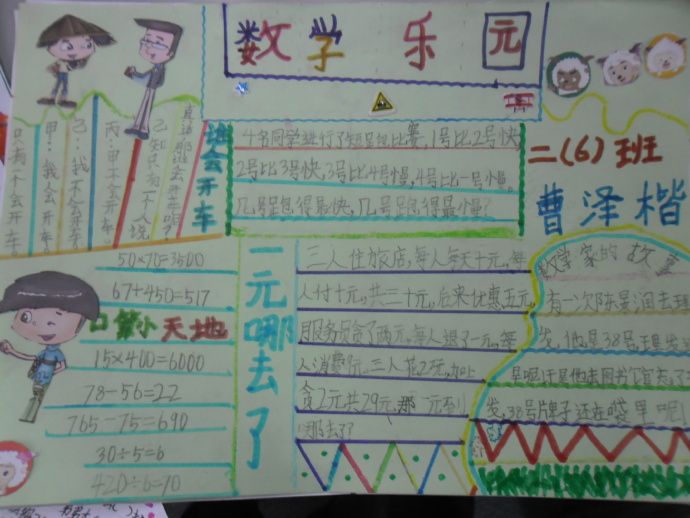 数学乐元
二(6)班
曹泽楷
谁会开车
只有一个会开车。
甲：我会开车。
乙：我不会开车。
丙：甲不会开车。
己知只有一个人说
真话,那谁会开车呢?
4名同学进行了短跑比赛,1号比2号快,
2号比3号快,3号比4号慢,4号比一号慢。
几号跑得最快,几号跑得最慢?
口算小天地
50×70=3500
67+450=517
15×400=6000
78-56=22
765-75=690
30÷5=6
420÷6=70
一元哪去了
三人住旅店,每人每天十元,每
人付十元,共三十元,后来优惠五元,
服务员贪了两元,每人退了一元,等
人消费 元,三人花27元,加上
贪2元共29元,那一元到
哪去了
数学家的故事
有一次陈景润去理
发,他是38号理发
早呢于是他去图书馆去了
发,38号牌子还在口袋里呢